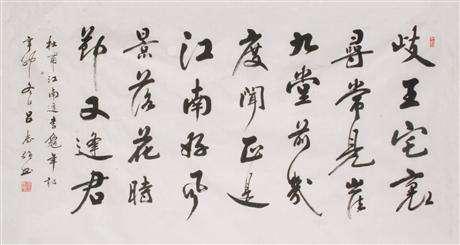 岐王宅裏
尋常見崔
九堂前幾
度聞正是
江南好風
景落花時
節又逢君
杜甫江南逢李龜年詩
辛卯冬日呂志